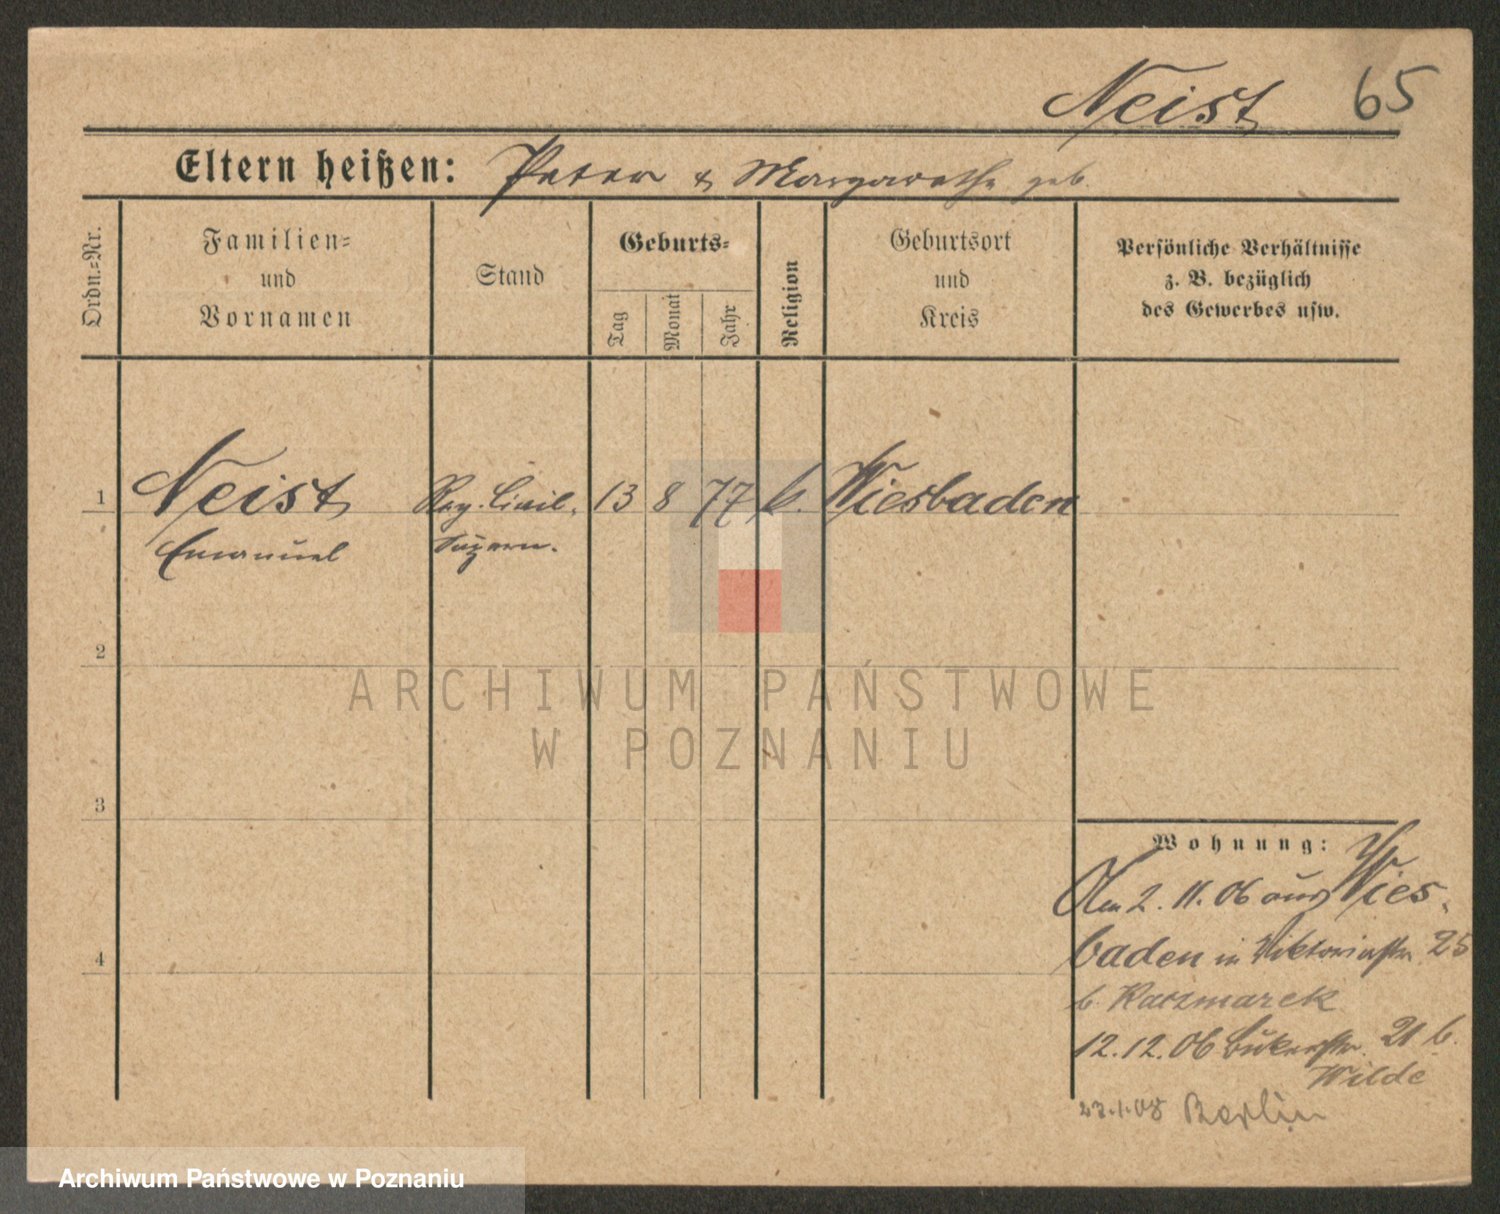 Neist 65
Eltern heißen: Peter & Margarethe geb.
Ordn.=Nr.
Familien=
und
Vornamen
Stand
Geburts=
Tag
Monat
Jahr
Religion
Geburtsort
und
Kreis
Persönliche Verhältnisse
z. B. bezüglich
des Gewerbes usw.
1 Neist Reg. Civil. 13 8 77 k. Wiesbaden
Emanuel Supern.
2
3
4
Wohnung:
Am 2. 11. 06 aus Wies-
baden in Viktoriastr. 25
b. Kaczmarek
12. 12. 06 Bukerstr. 21 b.
Wilde
23.1.08 Berlin
ARCHIWUM PAŃSTWOWE
W POZNANIU
Archiwum Państwowe w Poznaniu